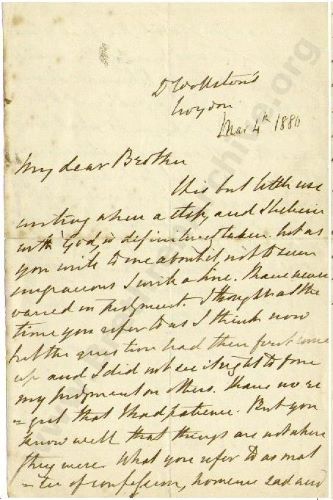 Dr Wolston's
Croydon
Mar 4th 1880
My dear Brother
It is but little use
writing when a step, and I believe
with God, is definitively taken but as
you write to me about it, not to seem
ungracious I write a line. I have never
varied in judgment. I thought at the
time you refer to as I think now
but the question had then first come
up and I did not see it right to force
my judgment on others. I have no re
=gret that I had patience. But you
know well that things are not where
they were. What you refer to as mat
=ter of confession, however sad and